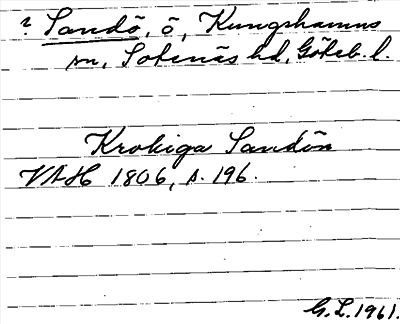 ? Sandö, ö, Kungshamns
sn, Sotenäs hd, Göteb. l.
Krokiga Sandön
VAH 1806, s. 196.
G.L. 1961.